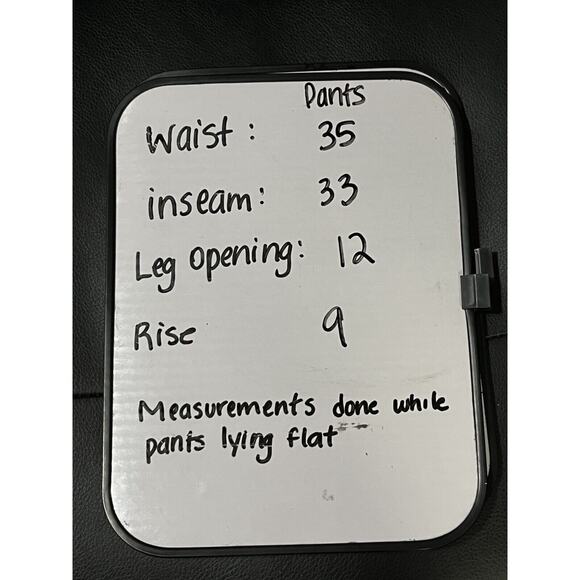 Pants
Waist: 35
inseam: 33
Leg Opening: 12
Rise 9
Measurements done while
pants lying flat